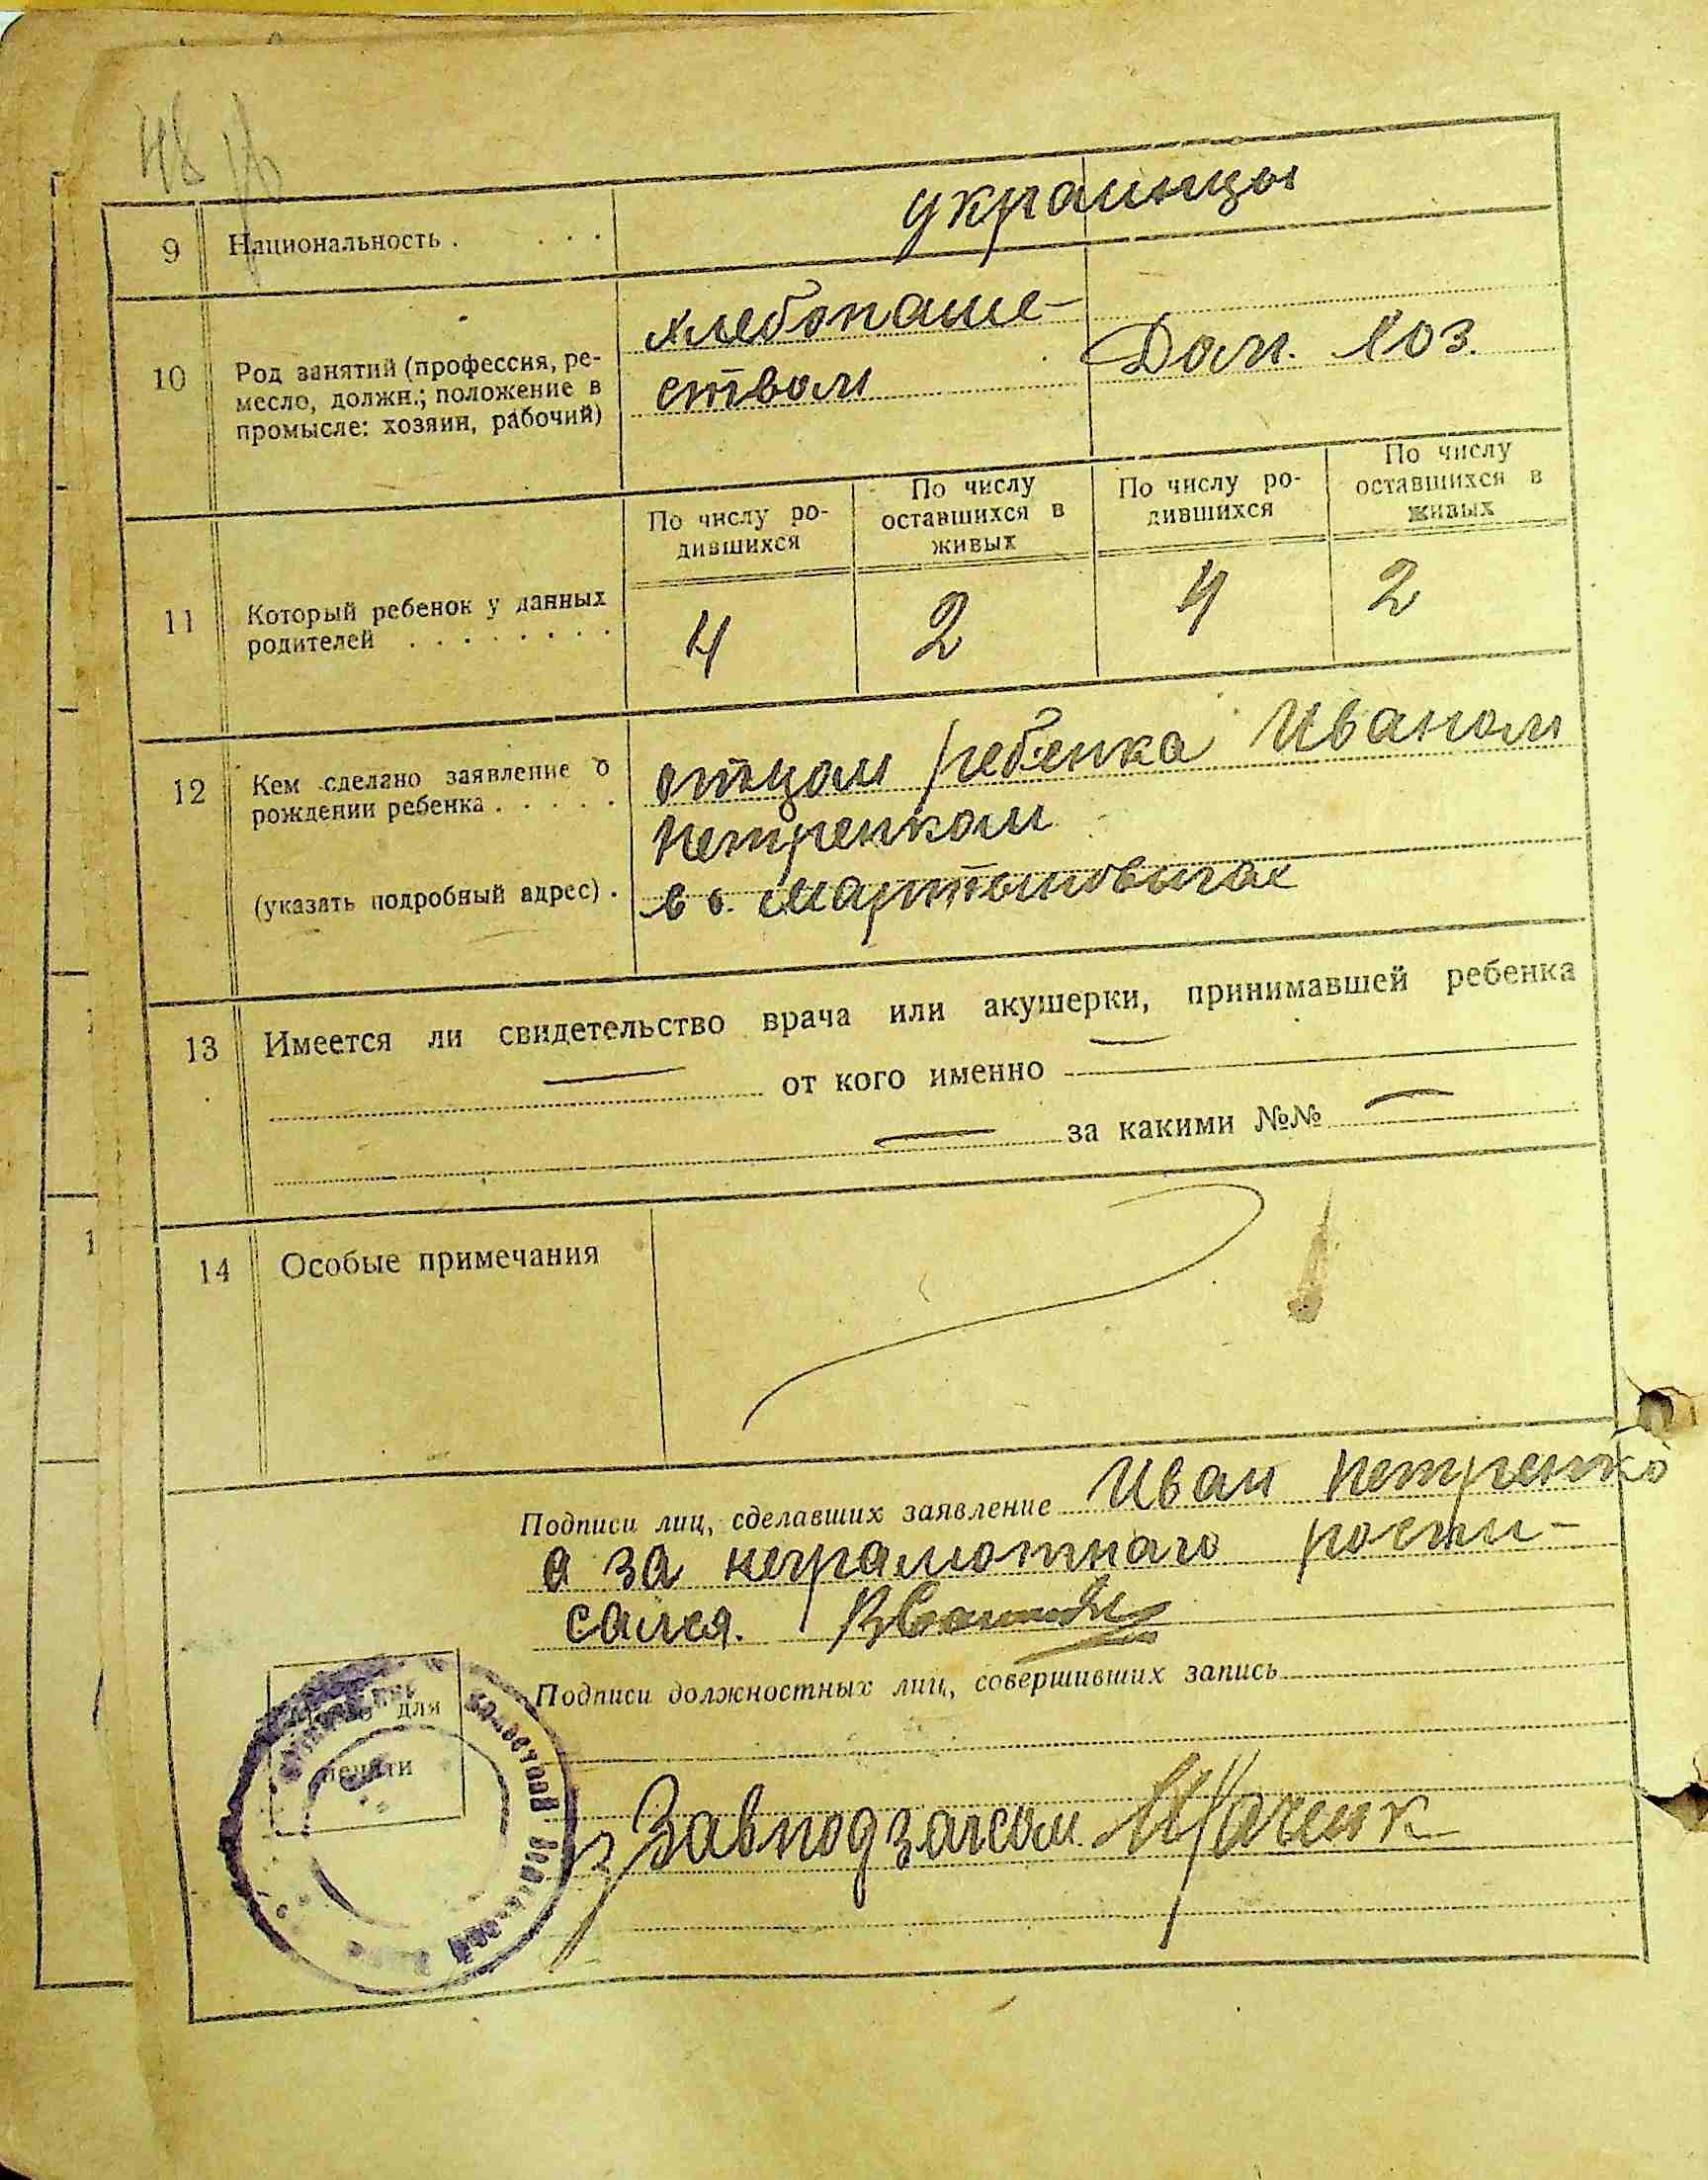 48
9 Национальность . . . . украинцы
10 Род занятий (профессия, ре-
месло, должн.; положение в
промысле: хозяин, рабочий)
хлебопаше-
ством
Дом. хоз.
11 Который ребенок у данных
родителей . . . . . . . .
По числу ро-
дившихся
По числу
оставшихся в
живых
По числу ро-
дившихся
По числу
оставшихся в
живых
4 2 4 2
12 Кем сделано заявление о
рождении ребенка . . . . .
(указать подробный адрес) .
отцом ребенка Иваном
Петренком
в с. Мартыновичах
13 Имеется ли свидетельство врача или акушерки, принимавшей ребенка
— от кого именно —
— за какими №№ —
14 Особые примечания
Подписи лиц, сделавших заявление Иван Петренко
а за неграмотнаго роспи-
сался.
Подписи должностных лиц, совершивших запись
для
печати
Завподзагсом